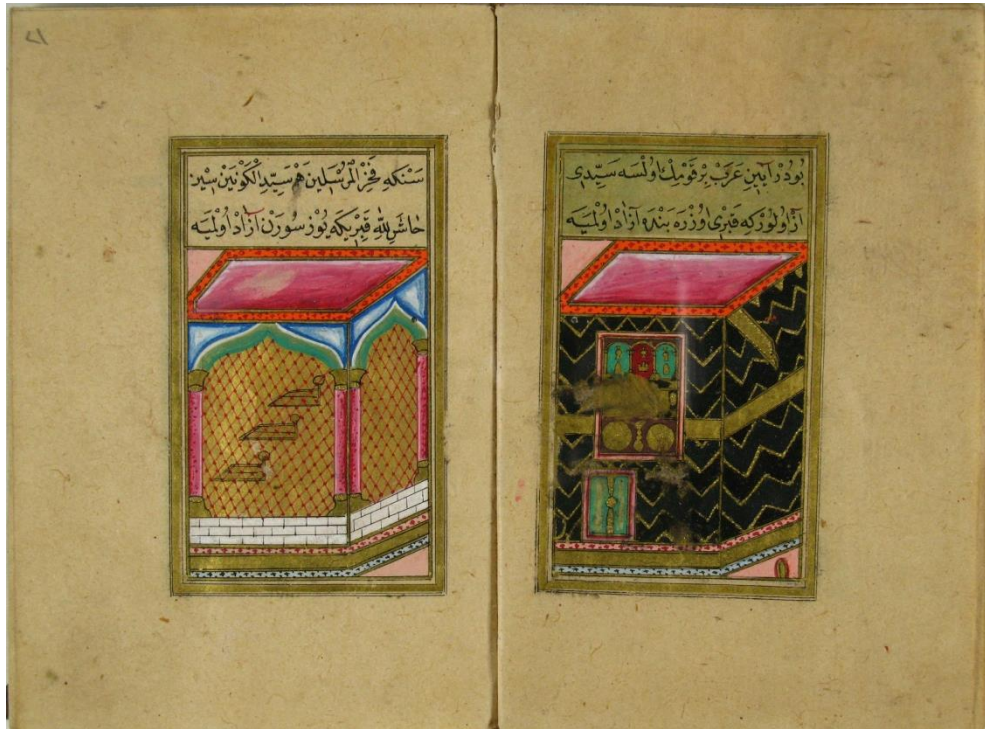 بودر آيين عرب بر قومك اولسه سيدى
آزاد اولور كه قبرى اوزره بنده آزاد اولميه
سنكه فخر المرسلين هم سيد الكونين سين
حاش لله قبريكه يوز سورن آزاد اولميه